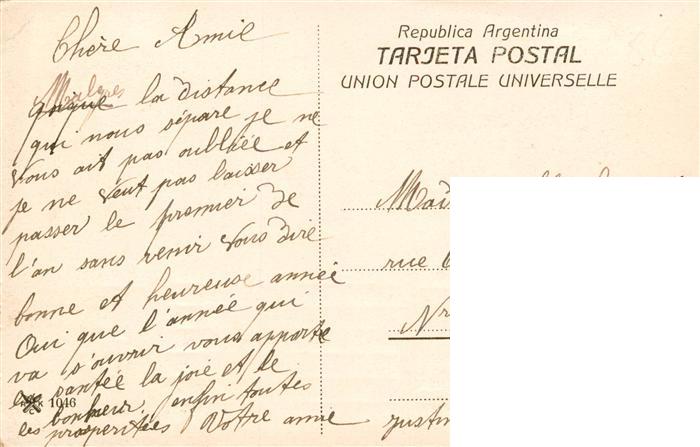 Chère Amie
Malgres
quique la distance
qui nous sépare je ne
vous ait pas oubliée et
je ne veut pas laisser
passer le premier de
l'an sans venir vous dire
bonne et heureuse année
Oui que l'année qui
va s'ouvrir vous apporte
la santée la joie et le
bonheur, enfin toutes
les prosperitées Votre amie
1046
Republica Argentina
TARJETA POSTAL
UNION POSTALE UNIVERSELLE
rue
Nr